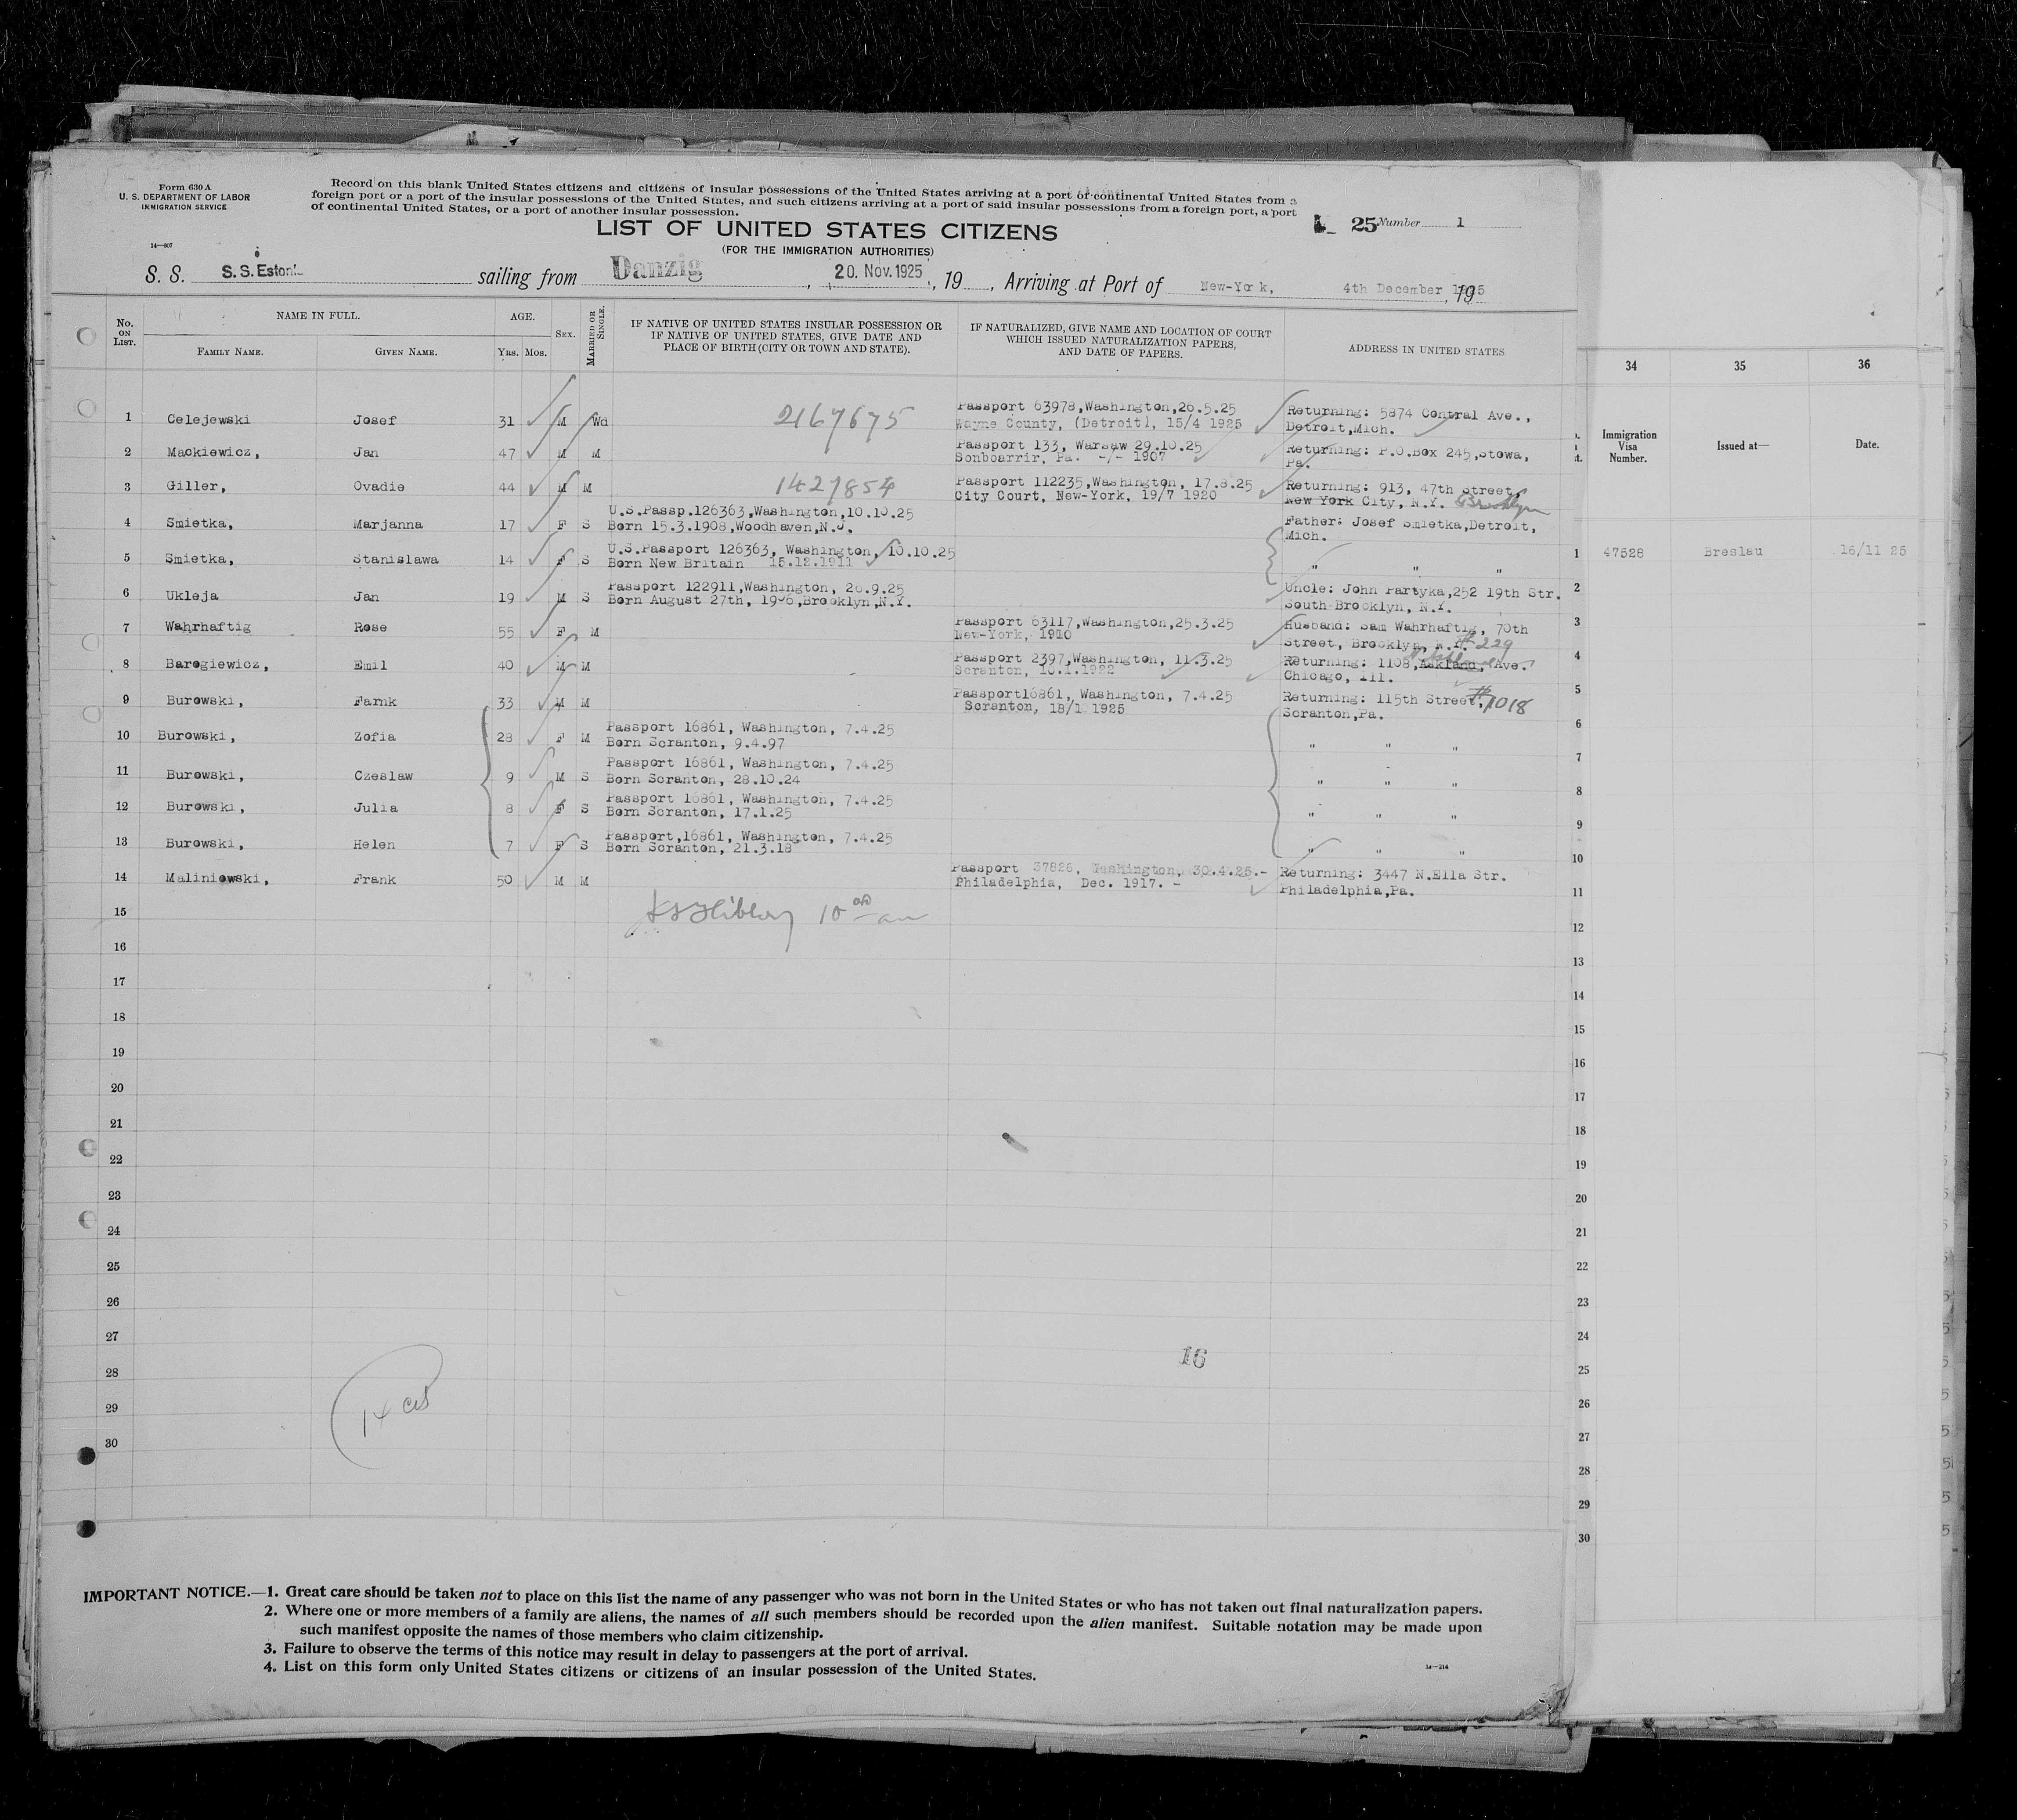 Form 630 A
U. S. DEPARTMENT OF LABOR
IMMIGRATION SERVICE
14—607
Record on this blank United States citizens and citizens of insular possessions of the United States arriving at a port of continental United States from a
foreign port or a port of the insular possessions of the United States, and such citizens arriving at a port of said insular possessions from a foreign port, a port
of continental United States, or a port of another insular possession.
LIST OF UNITED STATES CITIZENS
(FOR THE IMMIGRATION AUTHORITIES)
25 Number 1
S. S. S.S. Estonia sailing from Danzig, 20. Nov. 1925, 19, Arriving at Port of New-York, 4th December 1925, 19
No. ON LIST. NAME IN FULL. FAMILY NAME. GIVEN NAME. AGE. YRS. MOS. SEX. MARRIED OR SINGLE.
IF NATIVE OF UNITED STATES INSULAR POSSESSION OR
IF NATIVE OF UNITED STATES, GIVE DATE AND
PLACE OF BIRTH (CITY OR TOWN AND STATE).
IF NATURALIZED, GIVE NAME AND LOCATION OF COURT
WHICH ISSUED NATURALIZATION PAPERS,
AND DATE OF PAPERS.
ADDRESS IN UNITED STATES
1 Celejewski Josef 31 M Wd 2167675 Passport 63978,Washington,26.5.25 Returning: 5874 Contral Ave.,
Wayne County, (Detroit), 15/4 1925 Detroit,Mich.
2 Mackiewicz, Jan 47 M M Passport 133, Warsaw 29.10.25 Returning: P.O.Box 245,Stowa,
Sonboarrir, Pa. -/- 1907 Pa.
3 Giller, Ovadie 44 M M 1427854 Passport 112235,Washington, 17.8.25 Returning: 913, 47th Street,
City Court, New-York, 19/7 1920 New York City, N.Y. Brooklyn
4 Smietka, Marjanna 17 F S U.S.Passp.126363,Washington,10.10.25 Father: Josef Smietka,Detroit,
Born 15.3.1908,Woodhaven,N.J. Mich.
5 Smietka, Stanislawa 14 F S U.S.Passport 126363, Washington, 10.10.25
Born New Britain 15.12.1911 " " "
6 Ukleja Jan 19 M S Passport 122911,Washington, 26.9.25 Uncle: John Partyka,252 19th Str.
Born August 27th, 1906,Brooklyn,N.Y. South Brooklyn, N.Y.
7 Wahrhaftig Rose 55 F M Passport 63117,Washington,25.3.25 Husband: Sam Wahrhaftig, 70th
New-York, 1910 Street, Brooklyn, N.Y. # 229
8 Barogiewicz, Emil 40 M M Passport 2397,Washington, 11.3.25 Returning: 1108,Askland, Ave.
Scranton, 10.1.1922 Chicago, Ill.
9 Burowski, Farnk 33 M M Passport16861, Washington, 7.4.25 Returning: 115th Street, #1018
Scranton, 18/1 1925 Scranton,Pa.
10 Burowski, Zofia 28 F M Passport 16861, Washington, 7.4.25
Born Scranton, 9.4.97 " " "
11 Burowski, Czeslaw 9 M S Passport 16861, Washington, 7.4.25
Born Scranton, 28.10.24 " " "
12 Burowski, Julia 8 F S Passport 16861, Washington, 7.4.25
Born Scranton, 17.1.25 " " "
13 Burowski, Helen 7 F S Passport,16861, Washington, 7.4.25
Born Scranton, 21.3.18 " " "
14 Maliniowski, Frank 50 M M Passport 37826, Washington, 30.4.25.- Returning: 3447 N.Ella Str.
Philadelphia, Dec. 1917. - Philadelphia,Pa.
15 10 00 am
16
17
18
19
20
21
22
23
24
25
26
27
16
28
29 14
30
IMPORTANT NOTICE.—1. Great care should be taken not to place on this list the name of any passenger who was not born in the United States or who has not taken out final naturalization papers.
2. Where one or more members of a family are aliens, the names of all such members should be recorded upon the alien manifest. Suitable notation may be made upon
such manifest opposite the names of those members who claim citizenship.
3. Failure to observe the terms of this notice may result in delay to passengers at the port of arrival.
4. List on this form only United States citizens or citizens of an insular possession of the United States.
14—214
34 35 36
Immigration Visa Number. Issued at— Date.
1 47528 Breslau 16/11 25
2
3
4
5
6
7
8
9
10
11
12
13
14
15
16
17
18
19
20
21
22
23
24
25
26
27
28
29
30